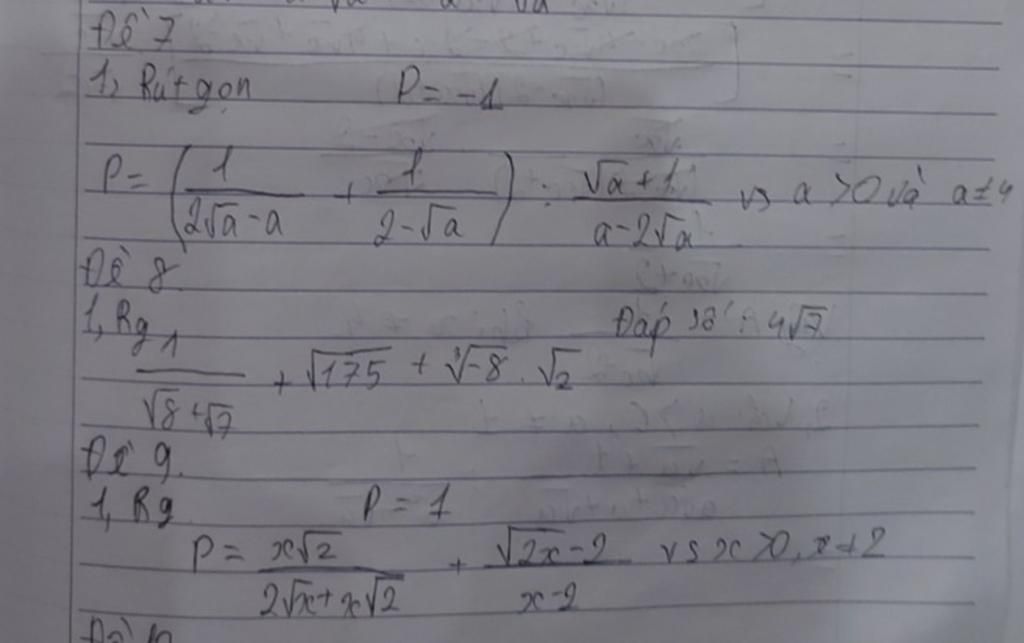 Đề 7
1, Rút gọn P = -1
P = (1/(2√a - a) + 1/(2 - √a)) : (√a + 1)/(a - 2√a) vs a > 0 và a ≠ 4
Đề 8
1, Rg Đáp số : 4√7
1/(√8 + √7) + √175 + ∛-8 . √2
Đề 9.
1, Rg P = 1
P = x√2/(2√x + x√2) + (√2x - 2)/(x - 2) vs x > 0, x ≠ 2